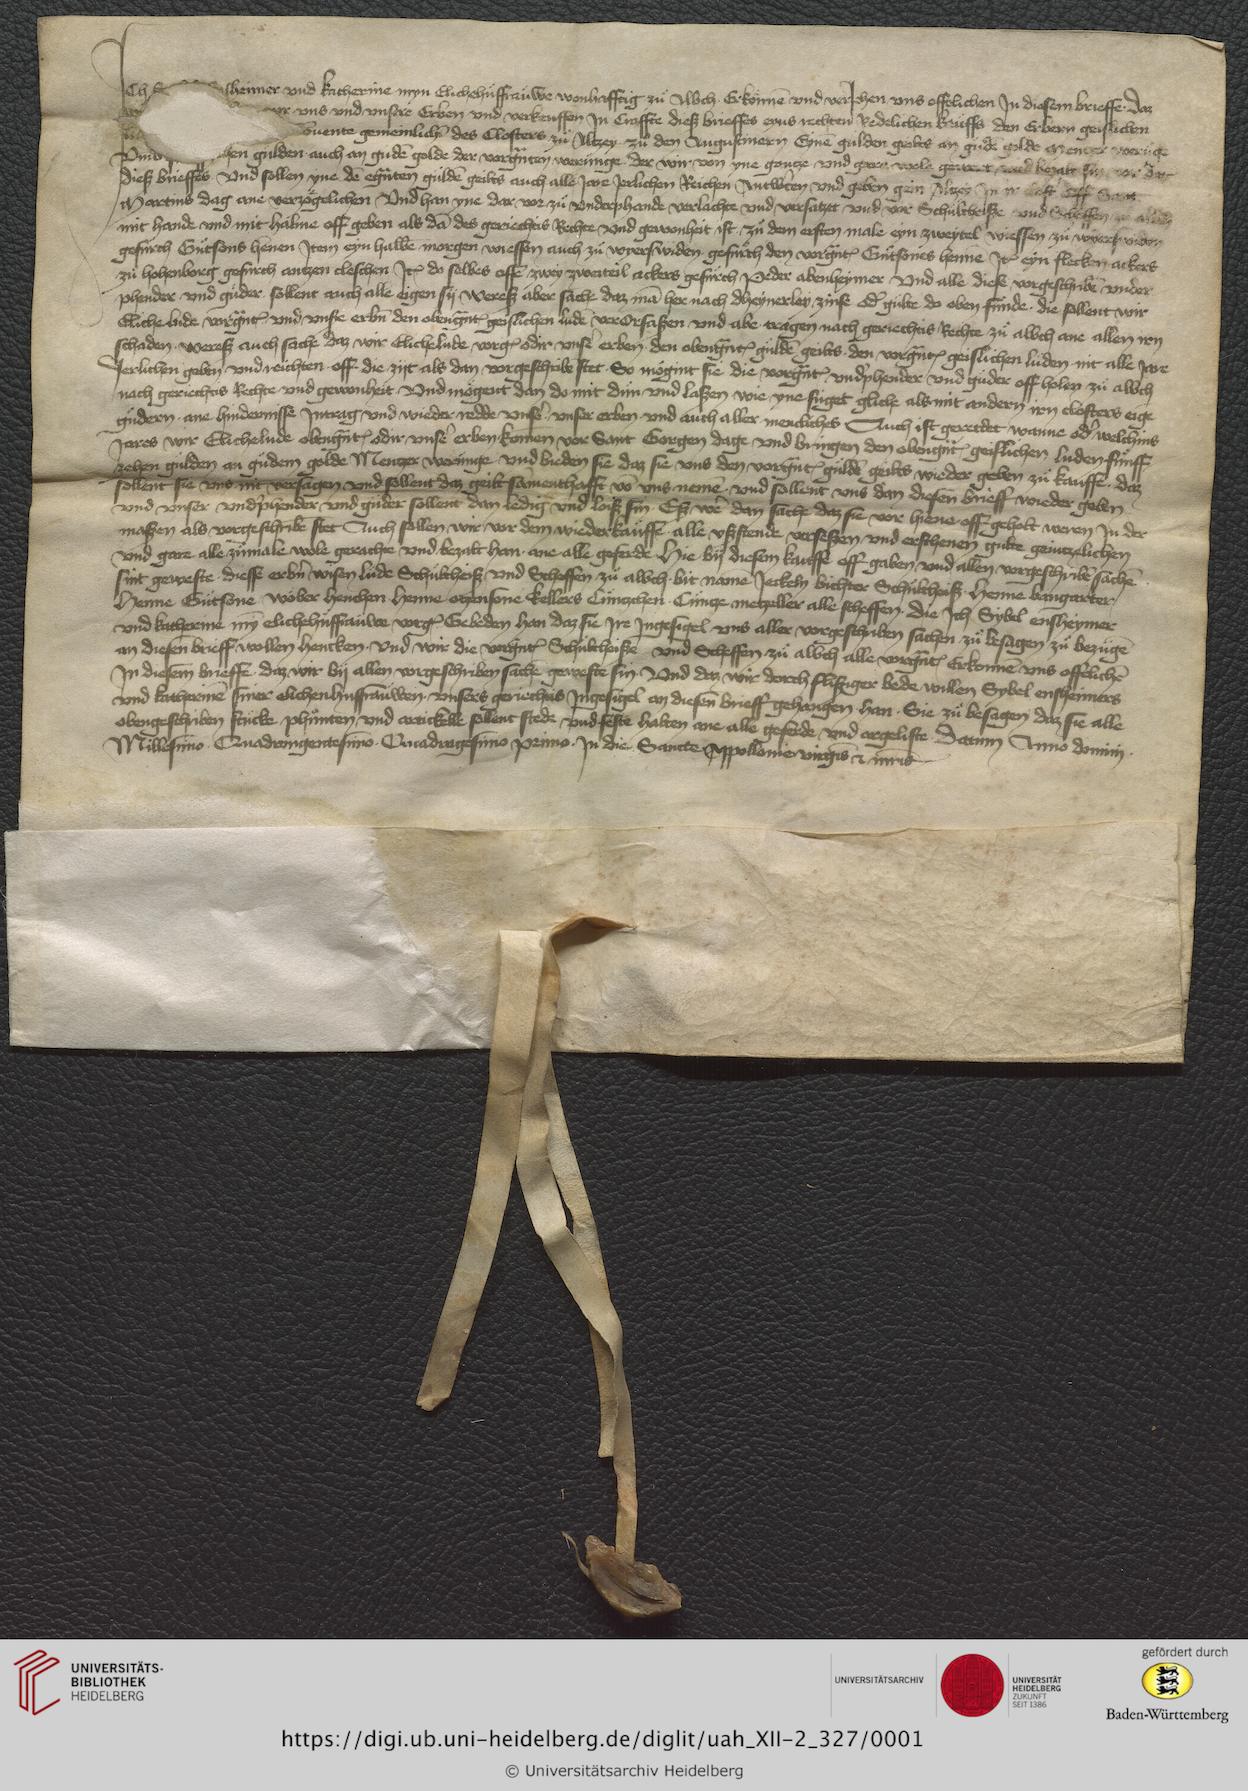 Ich S sheimer vnd katherine myn elichehussfrauwe wonhafftig zu Albich Erkennē vnd veriehen vns offelichen In diesem brieffe daz
vor vns vnd vnsere Erben vnd verkeuffen In Craffte dieß brieffes eyns rechten Redelichen kauffs den Erbern geistlichen
Conuente gemeinlich des Closters zu Altzey zu den Augustinern Eynē gulden gelts an gude golde Mentzer werūge
gulden auch an gudē golde der vorgnten werunge der wir von yne gantze vnd gare wole gewert vnd bezalt sin vor dat
dieß brieffes Vnd sollen yne dē egnten guldē gelts auch alle Jare Jerlichen Reichen Antwortē vnd geben gein Altzey In ir off Sant
Martins dag ane verzogelichen Vnd han yne dar vor zu vnderphande verlachte vnd versatzt vnd vor Schultheiße vnd Scheffen zu albich
mit hande vnd mit halme off geben als dā des geriechtis Rechte vnd gewonheit ist zu dem ersten male eyn zweytel wiessen zu
gefurch Gutsons henen Item eyn halbe morgen wiessen auch zu gefurch den vorgntē Gutsones henne Itē eyn flecken ackers
zu hohenborg gefurch antzen cleschen Itē do selbes offe zwey zweiteil ackers gefurch Peder abenheymer Vnd alle diese vorgeschribē vnder
phender vnd guder sollent auch alle eigen sij wereß aber sache daz mā her nach dheynerley zinse odˀ gulte do oben funde die sollent wir
Eliche lude vorgntē vnd vnsˀe erbn den obengntē geistlichen lude verorsaßen vnd abe tragen nach geriechtis Rechte zu albich ane allen irn
schaden wereß auch sache daz wir Elichelude vorgē odir vnsˀe erben den obengntē guldē gelts den vorgntē geistlichen luden nit alle Jare
Jerlichen geben vnd reichten off die zijt als dan vorgeschribē stet So mogint sie die vorgntē vndˀphender vnd guder off holen zu albich
nach geriechtis Rechte vnd gewonheit Vnd mogent dan do mit dun vnd laßen wie yne fuget gliche als mit andern irn closters eige
gudern ane hindernisse Intrag vnd wieder redde vnsˀe vnser erben vnd auch aller menliches Auch ist geredet wanne odˀ welchins
Jares wir Elichelude obengntē odir vnsˀe erben komen vor Sant Gorgen dage vnd bringen den obengntē geistlichen luden funff
zehen gulden an gudem golde Mentzer werunge vnd bieden sie daz sie vns den vorgntē guldē gelts wieder geben zu kauffe daz
sollent sie vns nit versagen vnd sollent daz gelt samenthafft vō vns nemē vnd sollent vns dan diesen brieff wieder geben
vnd vnser vndˀphender vnd guder sollent dan ledig vnd loiß sin Eß wē dan sache daz sie vor hiene off geholt weren In der
maßen als vorgeschribē stet Auch sollen wir vor dem wiederkauffe alle vßstende verseßen vnd erschenen gulte geintzelichen
vnd gare alle zumale wole gerachte vnd bezalt han ane alle geferde Hie bij diesem kauffe off gaben vnd allen vorgeschribē sachē
sint geweste diesse erbn wisen lude Schultheiß vnd Scheffen zu albich bit name Jeckeln bichter Schultheiß Henne bangarter
Henne Gutsone wober henchen henne otzensone kellers Cuntzchen Cuntze metzeller alle scheffen die Ich Sybel ensheymer
vnd katherine my elichehussfrauwe vorgē Gebeden han daz sie Ire Ingesigel vns aller vorgeschriben sachen zu besagen zu bezugē
an diesen brieff wollen hencken Vnd wir die vorgntē Schultheiße vnd Scheffen zu albich alle vorgntē Erkennē vns offelichē
In diesem brieffe daz wir bij allen vorgeschriben sachē geweste sin Vnd daz wir dorch flißiger bede willen Sybel ensheimers
vnd katherine siner elichenhussfrauwen vnsers geriechtis Ingesigel an diesen brieff gehangen han Sie zu besagen daz sie alle
obengeschriben stucke phunten vnd artickelle sollent stede vnd feste halten ane alle geferde vnd argeliste Datum Anno domini
Millesimo Quadringentesimo Quadragesimo primo In die Sancte Appollonie virgīs & mrīs
UNIVERSITÄTS-
BIBLIOTHEK
HEIDELBERG
UNIVERSITÄTSARCHIV
UNIVERSITÄT
HEIDELBERG
ZUKUNFT
SEIT 1386
gefördert durch
Baden-Württemberg
https://digi.ub.uni-heidelberg.de/diglit/uah_XII-2_327/0001
© Universitätsarchiv Heidelberg